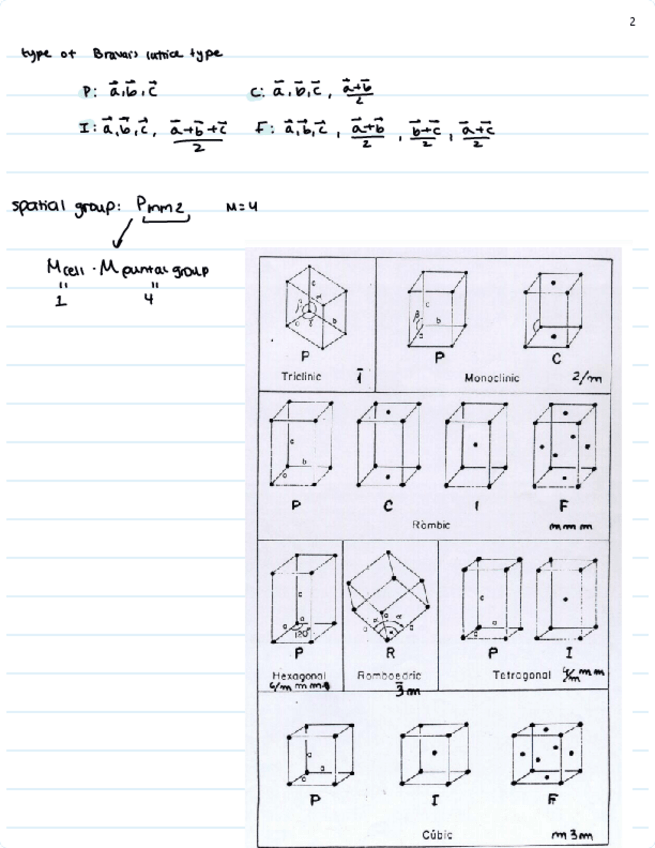 2
type of Bravais lattice type
P: a⃗, b⃗, c⃗ C: a⃗, b⃗, c⃗, (a⃗+b⃗)/2
I: a⃗, b⃗, c⃗, (a⃗+b⃗+c⃗)/2 F: a⃗, b⃗, c⃗, (a⃗+b⃗)/2, (b⃗+c⃗)/2, (a⃗+c⃗)/2
spatial group: Pmm2 M=4
Mcell · M puntal group
" "
1 4
c
b
P
Triclinic 1̄
c
β b
a
P C
Monoclinic 2/m
c
b
a
P C I F
Ròmbic m m m
c
a a
120°
P
Hexagonal
6/m m m
α α
a a
R
Romboèdric
3̄m
c
a
a
P I
Tetragonal 4/m m m
a
a
a
P I F
Cúbic m3m